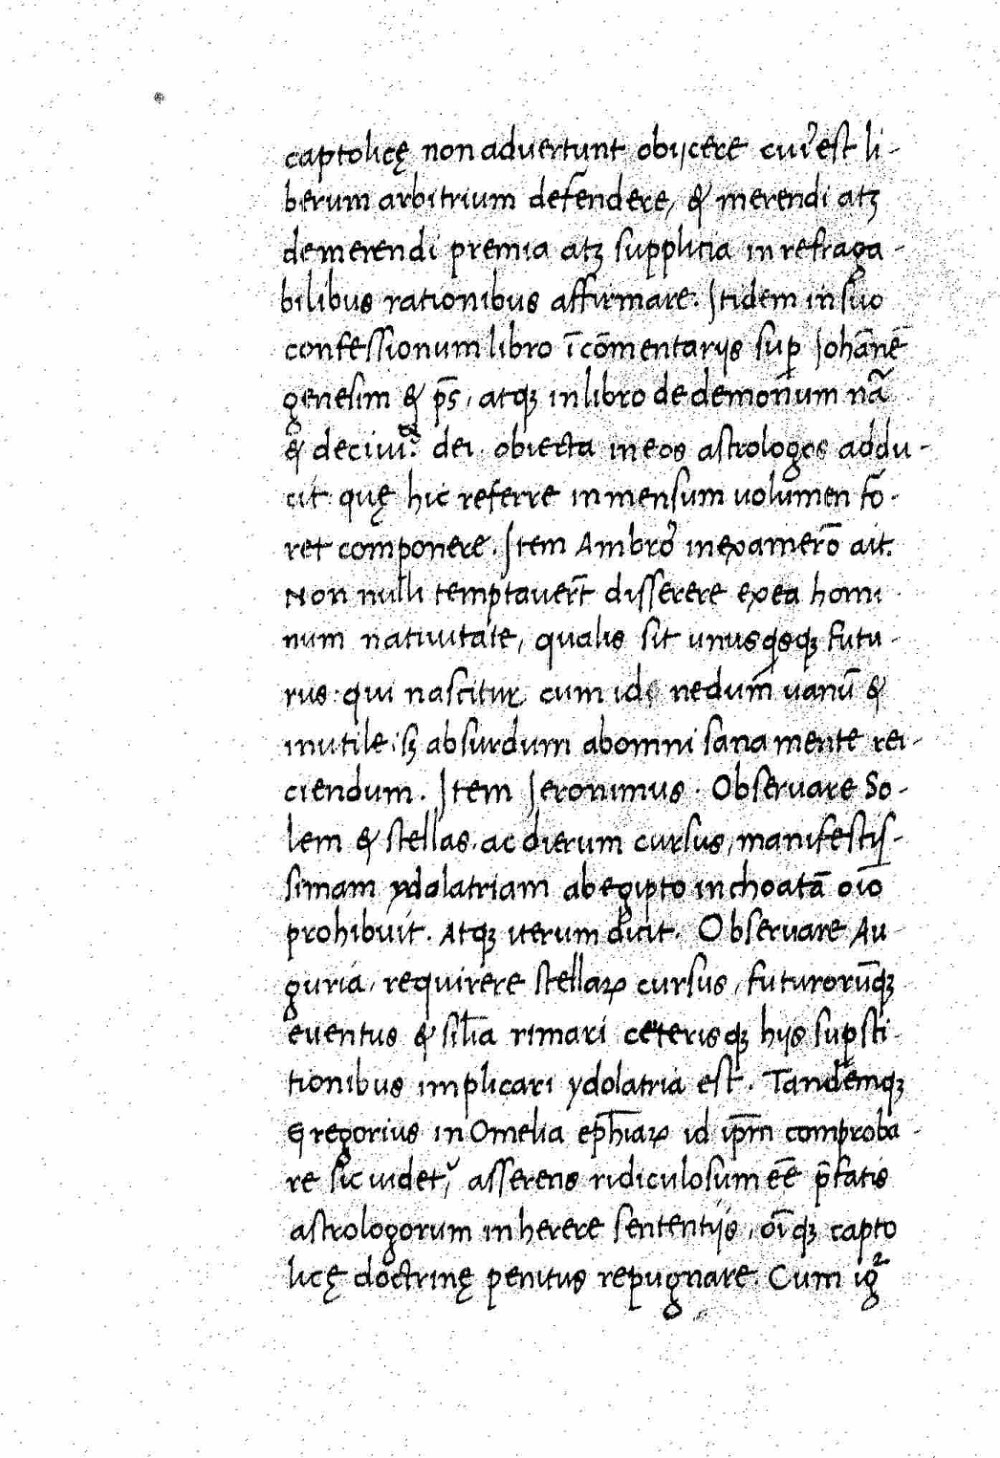 captolicę non advertunt obijcere cuiꝰ est li-
berum arbitrium defendere, & merendi atꝫ
demerendi premia atꝫ supplicia in refraga-
bilibus rationibus affirmare. Itidem in suo
confessionum libro ī cōmentarijs suꝑ Johānē
genesim & p̄s, atqꝫ in libro de demonum nāa
& de civiᵗ. dei. obiecta in eos astrologos addu-
cit quę hic referre inmensum volumen fo-
ret componere. Item Ambroꝰ in examerō ait.
Non nulli temptavert̄ disserere ex ea homi-
num nativitate, qualis sit unusqsqꝫ futu-
rus qui nascitur cum id nedum vanū &
inutile sꝫ absurdum ab omni sana mente rei-
ciendum. Item Jeronimus. Observare So-
lem & stellas. ac dierum cursus, manifestis-
simam ydolatriam ab egipto inchoatā oīo
prohibuit. Atqꝫ iterum dicit. Observare Au
guria, requirere stellaꝝ cursus, futurorūqꝫ
eventus & sil̄ia rimari ceterisqꝫ hijs suꝑsti-
tionibus implicari ydolatria est. Tandemqꝫ
Gregorius in Omelia eph̄iaꝝ id ip̄m comproba-
re sic videt᷑, asserens ridiculosum eē̄ p̄fatis
astrologorum inherere sententijs, oīqꝫ capto
licę doctrinę penitus repugnare. Cum igᷓ